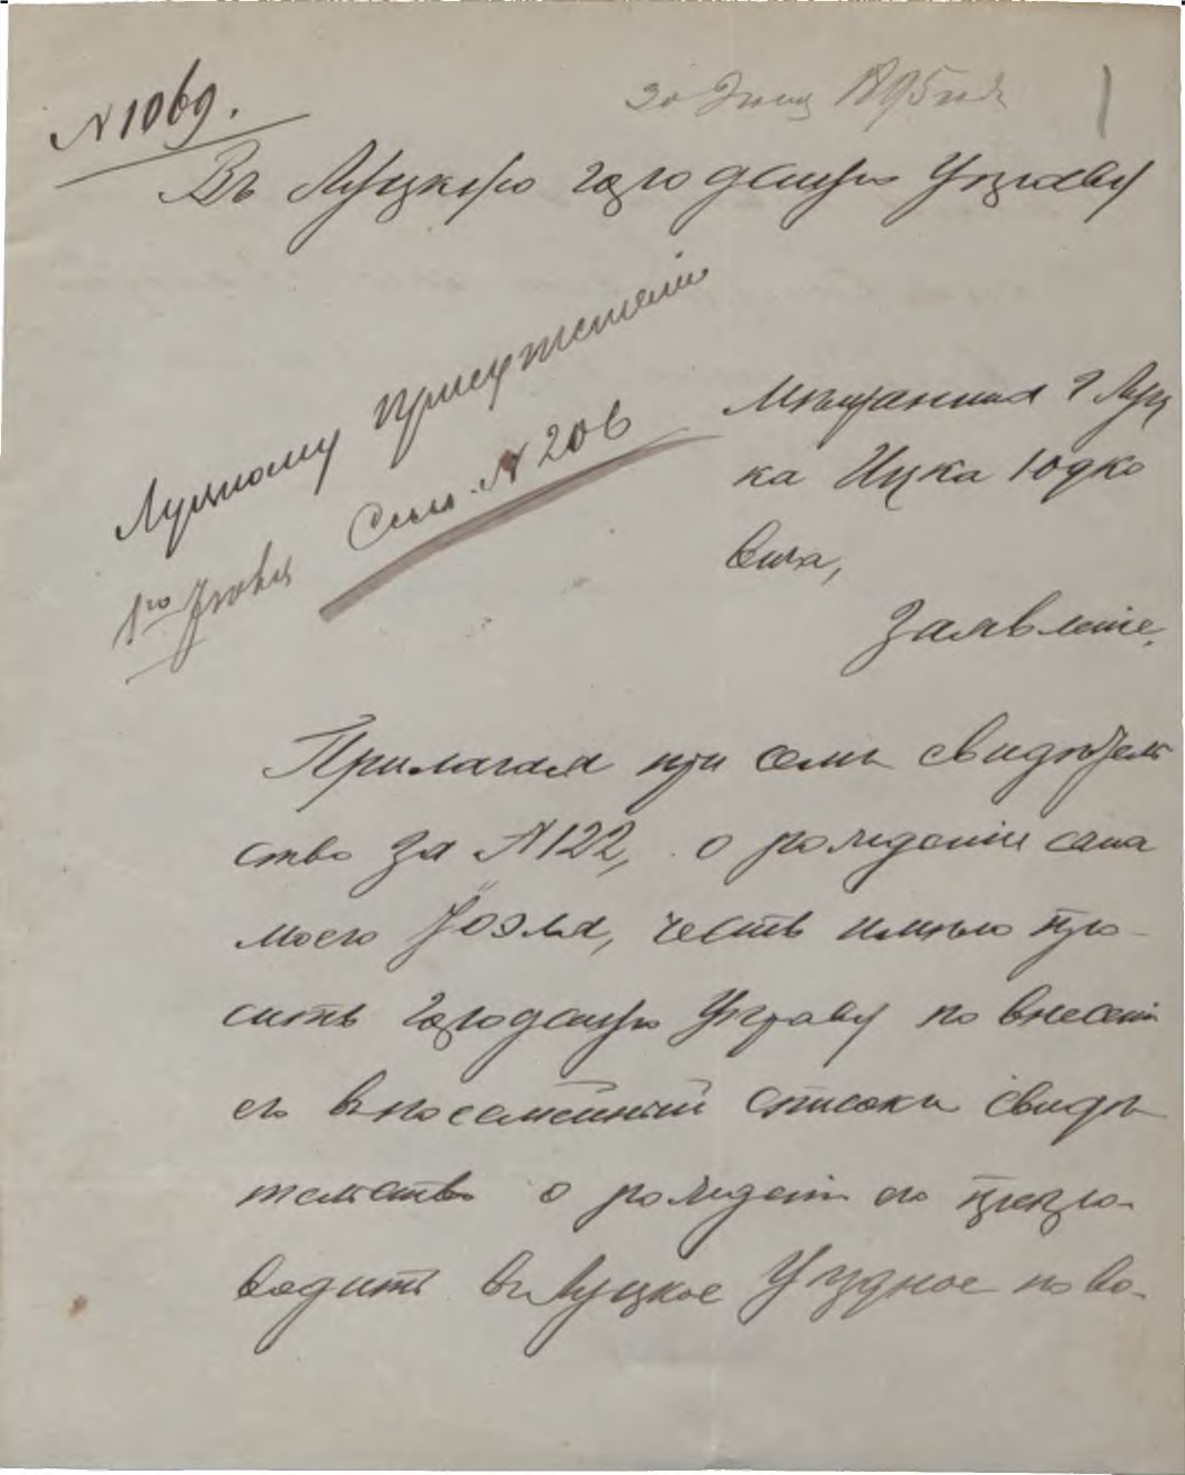 № 1069.
30 Июня 1895 года
1
Въ Луцкую городскую Управу
Луцкому присутствию
Сем. № 206
Мѣщанина г Луц
ка Ицка Юдко
вича,
Заявленіе.
Прилагая при семъ свидѣтель
ство за № 122, о рожденіи сына
моего Іоэля, честь имѣю про-
сить городскую Управу по внесеніи
его въ посемейный списокъ свидѣ
тельство о рожденіи его препро-
водить въ Луцкое Уѣздное по во-